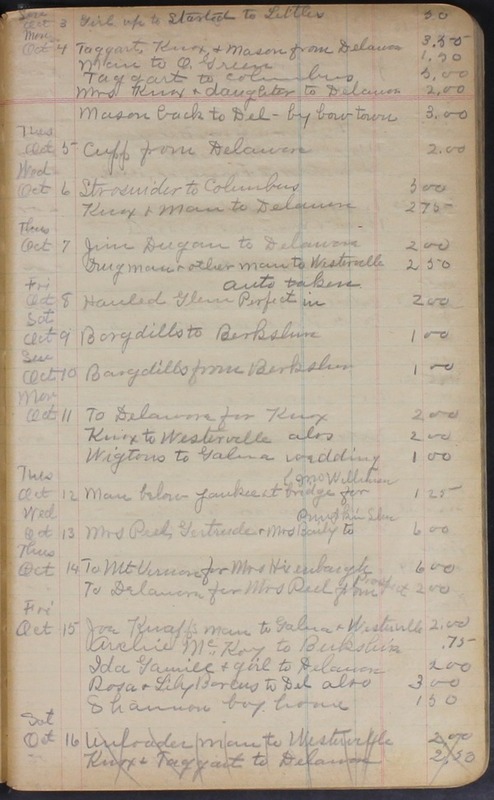 Sun
Oct 3 Girl up to Started to Littler 50
Mon
Oct 4 Taggart, Knox, & Mason from Delawon 3.50
Man to O. Green 1.50
Taggart to Columbus 5.00
Mrs Knox & daughter to Delawon 2.00
Mason back to Del - by bow town 3.00
Tues
Oct 5 Cuff from Delawon 2.00
Wed
Oct 6 Strosnider to Columbus 5 00
Knox & Man to Delawon 2 75
Thus
Oct 7 Jim Dugan to Delawon 2 00
Drugman & other man to Westerville 2 50
auto taken
Fri
Oct 8 Hauled Glenn Perfect in 2 00
Sat
Oct 9 Bargdills to Berkshire 1 00
Sun
Oct 10 Bargdills from Berkshire 1 00
Mon
Oct 11 To Delawon for Knox 2 00
Knox to Westerville alos 2 00
Wigtons to Galena wedding 1 00
Tues
Oct 12 Man below yankee st bridge for McWilliams 1 25
Wed
Oct 13 Mrs Gertrude & Mrs to 6 00
Thus
Oct 14 To Mt Vernon for Mrs 6 00
To Delawon for Mrs from Prospect 2 00
Fri
Oct 15 Joe Knaffs man to Galena & Westerville 2.00
Archie McKoy to Berkshire .75
Ida & girl to Delawon 2 00
Rosa & Lily Borcus to Del alos 3 00
Shannon boy home 1 50
Sat
Oct 16 Unloader man to Westerville 2.00
Knox & Taggart to Delawon 2.50